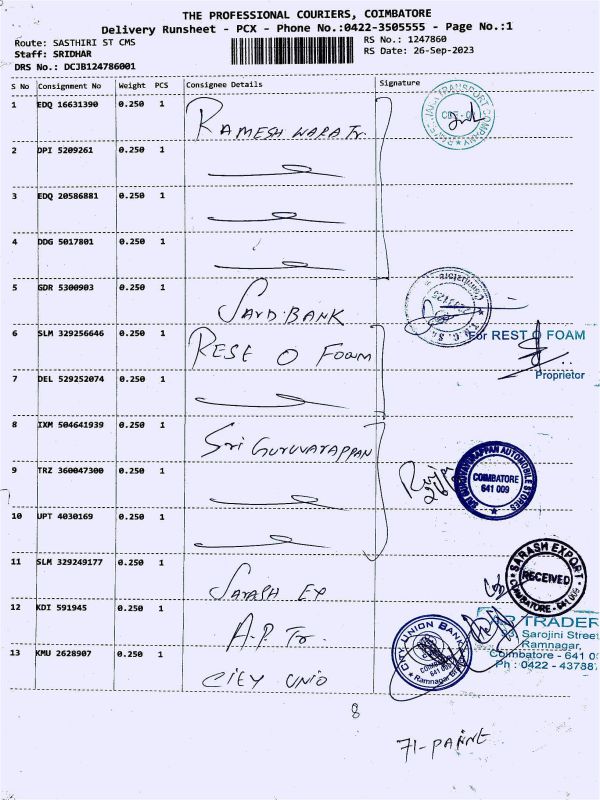 THE PROFESSIONAL COURIERS, COIMBATORE
Delivery Runsheet - PCX - Phone No.:0422-3505555 - Page No.:1
Route: SASTHIRI ST CMS
RS No.: 1247860
Staff: SRIDHAR
RS Date: 26-Sep-2023
DRS No.: DCJB124786001
S No Consignment No Weight PCS Consignee Details Signature
1 EDQ 16631390 0.250 1 RAMESHWARA Tr.
2 DPI 5209261 0.250 1
3 EDQ 20586881 0.250 1
4 DDG 5017801 0.250 1
5 GDR 5300903 0.250 1 SAVD.BANK
6 SLM 329256646 0.250 1 REST O FOAM
For REST O FOAM
Proprietor
7 DEL 529252074 0.250 1
8 IXM 504641939 0.250 1 Sri GURUVARAPPAN
9 TRZ 360047300 0.250 1
COIMBATORE
641 009
10 UPT 4030169 0.250 1
11 SLM 329249177 0.250 1 SARASH EX
SARASH EXPORT
RECEIVED
COIMBATORE - 641 009
12 KDI 591945 0.250 1 A.P. Tr.
TRADER
Sarojini Street
Ramnagar,
Coimbatore - 641
Ph : 0422 - 43788
13 KMU 2628907 0.250 1 CITY UNIO
CITY UNION BANK
8
71-PANNE